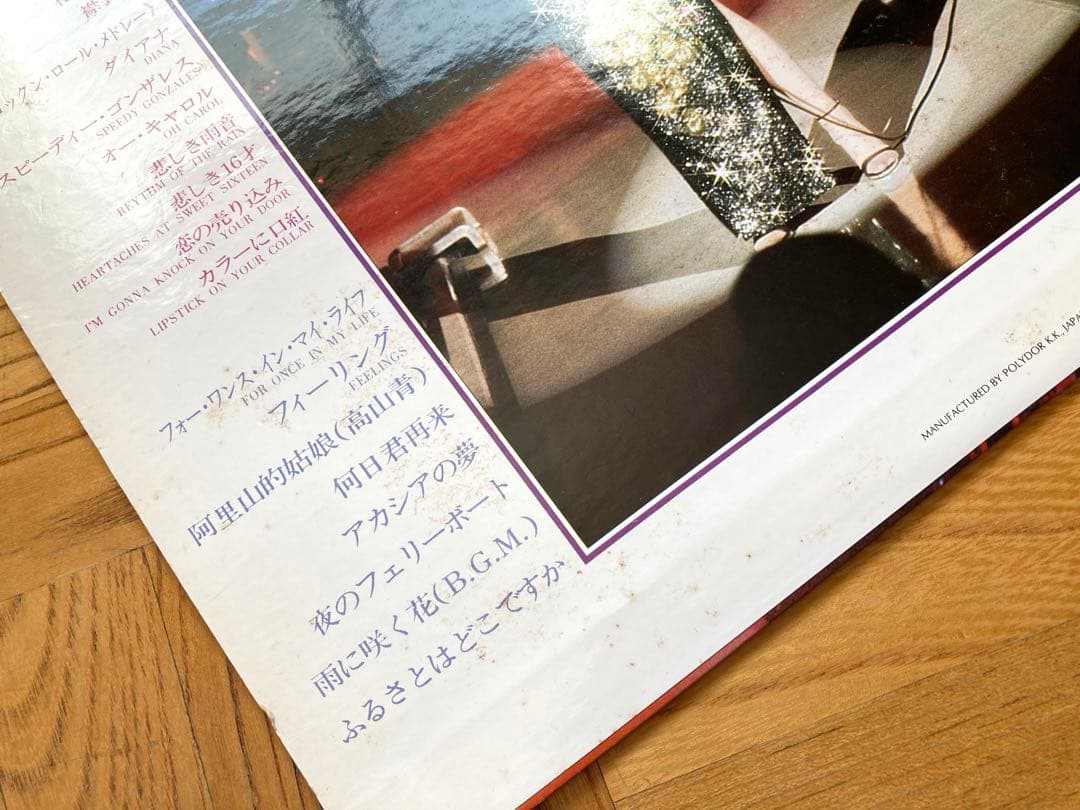 ックン・ロール・メドレー》
ダイアナ
DIANA
スピーディー・ゴンザレス
SPEEDY GONZALES
オー・キャロル
OH CAROL
悲しき雨音
RHYTHM OF THE RAIN
悲しき16才
HEARTACHES AT SWEET SIXTEEN
恋の売り込み
I'M GONNA KNOCK ON YOUR DOOR
カラーに口紅
LIPSTICK ON YOUR COLLAR
フォー・ワンス・イン・マイ・ライフ
FOR ONCE IN MY LIFE
フィーリング
FEELINGS
阿里山的姑娘(高山青)
何日君再来
アカシアの夢
夜のフェリーボート
雨に咲く花(B.G.M.)
ふるさとはどこですか
MANUFACTURED BY POLYDOR K.K., JAPA